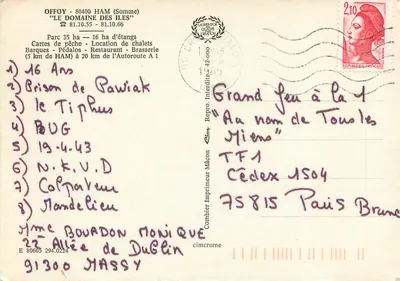 OFFOY - 80400 HAM (Somme)
"LE DOMAINE DES ILES"
☎ 81.10.55 — 81.10.66
Parc 35 ha — 16 ha d'étangs
Cartes de pêche - Location de chalets
Barques - Pédalos - Restaurant - Brasserie
(5 km de HAM) à 20 km de l'Autoroute A 1
1) 16 Ans
2) Prison de Pawiak
3) le Typhus
4) BUG
5) 19-4-43
6) N.K.V.D
7) Colporteur
8) Mandelieu
Mme BOURDON MONIQUE
22 Allée de Dublin
91300 MASSY
E 80605 294.0224
cimcrome
Combier Imprimeur Mâcon
Repro. Interdite
2,10
Grand Jeu à la 1
"Au nom de Tous les
Miens"
TF1
Cédex 1504
75815 Paris Brune